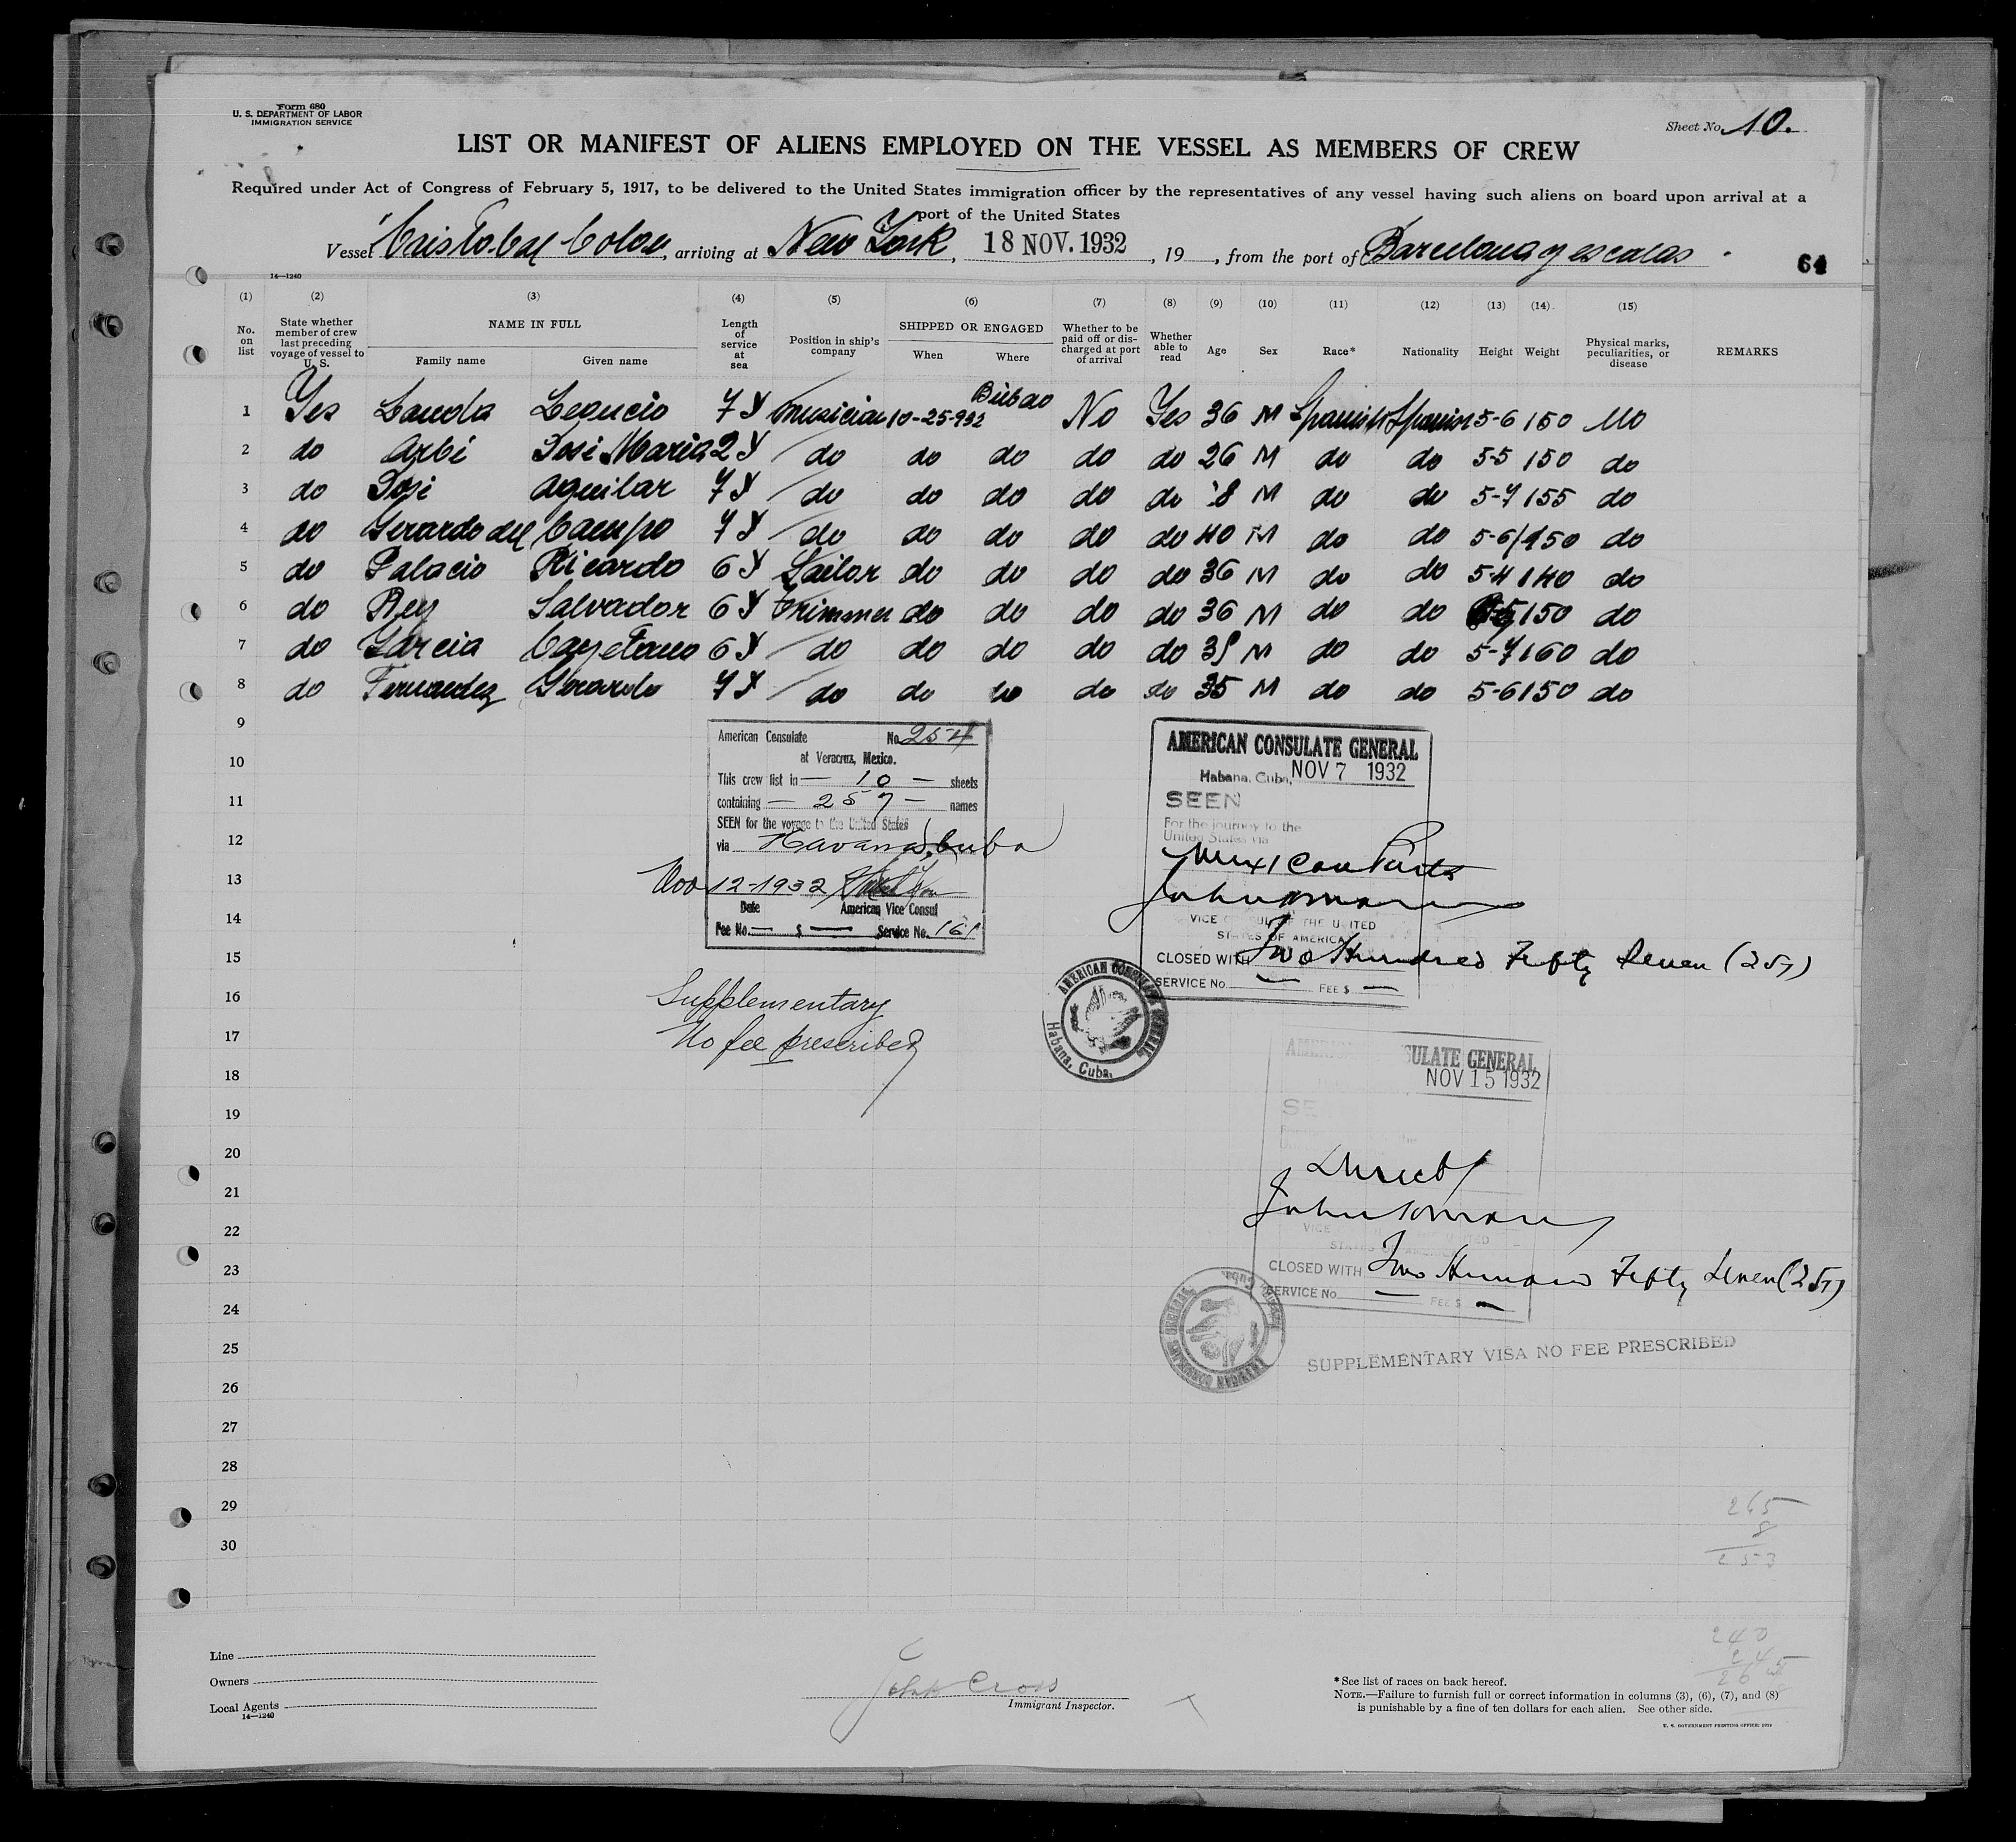 Form 680
U. S. DEPARTMENT OF LABOR
IMMIGRATION SERVICE
Sheet No. 10.
LIST OR MANIFEST OF ALIENS EMPLOYED ON THE VESSEL AS MEMBERS OF CREW
Required under Act of Congress of February 5, 1917, to be delivered to the United States immigration officer by the representatives of any vessel having such aliens on board upon arrival at a
port of the United States
Vessel Cristobal Colon, arriving at New York, 18 NOV. 1932, 19 , from the port of Barcelona y escalas
14—1240
64
(1) (2) (3) (4) (5) (6) (7) (8) (9) (10) (11) (12) (13) (14) (15)
No. on list
State whether member of crew last preceding voyage of vessel to U. S.
NAME IN FULL
Family name Given name
Length of service at sea
Position in ship's company
SHIPPED OR ENGAGED
When Where
Whether to be paid off or discharged at port of arrival
Whether able to read
Age Sex Race* Nationality Height Weight
Physical marks, peculiarities, or disease
REMARKS
1 Yes Leoncio 7 Y musician 10-25-932 Bilbao No Yes 36 M Spanish Spanish 5-6 150 No
2 do Arbi José Maria 2 Y do do do do do 26 M do do 5-5 150 do
3 do José Aguilar 7 Y do do do do do M do do 5-7 155 do
4 do Gerardo del Campo 7 Y do do do do do 40 M do do 5-6 150 do
5 do Palacio Ricardo 6 Y Sailor do do do do 36 M do do 5-4 140 do
6 do Rey Salvador 6 Y Trimmer do do do do 36 M do do 150 do
7 do Garcia Cayetano 6 Y do do do do do M do do 5-7 160 do
8 do Fernandez Gerardo 7 Y do do do do do 35 M do do 5-6 150 do
9
10
11
12
13
14
15
16
17
18
19
20
21
22
23
24
25
26
27
28
29
30
American Consulate No. 254
at Veracruz, Mexico.
This crew list in — 10 — sheets
containing — 257 — names
SEEN for the voyage to the United States
via Havana, Cuba
Nov 12-1932
Date American Vice Consul
Fee No. — $ — Service No. 161
Supplementary
No fee prescribed
AMERICAN CONSULATE GENERAL
Habana, Cuba, NOV 7 1932
SEEN
For the journey to the
United States via
Mexican Ports
VICE CONSUL OF THE UNITED
STATES OF AMERICA
CLOSED WITH Two Hundred Fifty Seven (257)
SERVICE No. — FEE $ —
AMERICAN CONSULATE GENERAL
Habana, Cuba.
AMERICAN CONSULATE GENERAL
NOV 15 1932
SE
Direct
VICE
CLOSED WITH Two Hundred Fifty Seven (257)
SERVICE No. — FEE $ —
AMERICAN CONSULATE GENERAL
Cuba.
SUPPLEMENTARY VISA NO FEE PRESCRIBED
265
8
253
240
Line
Owners
Local Agents
14—1240
John Cross
Immigrant Inspector.
*See list of races on back hereof.
NOTE.—Failure to furnish full or correct information in columns (3), (6), (7), and (8)
is punishable by a fine of ten dollars for each alien. See other side.